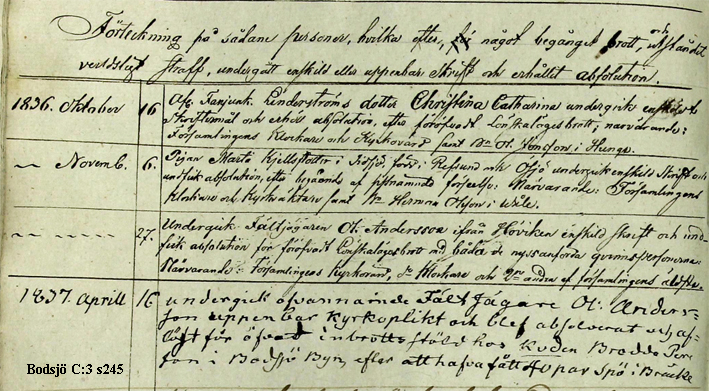 Förteckning på sådane personer, hvilka efter, för något begånget brott, och utståndet
verldsligt straff, undergått enskild eller uppenbar Skrift och erhållit absolution.
1836. Oktober 16 Af. Fanjunk. Linderströms dotter Christina Catharina undergick enskildt
Skriftemål och erhöll absolution, efter föröfvadt Lönskalägesbrott; närvarande:
Församlingens Klockare och Kyrkovärd samt Ol. Jonsson i Hunge.
— Novemb. 6. Pigan Märta Kjellsdotter i undergick enskild Skrift och
undfick absolution, efter begående af sistnämnde förseelse. Närvarande: Församlingens
Klockare och samt Herman Olsson i Wåle.
— 27. Undergick Fältjägaren Ol. Andersson ifrån Höviken enskild skrift och und-
fick absolution för föröfvadt Lönskalägesbrott med båda de nyss anförda qvinnspersonerna.
Närvarande: Församlingens Kyrkovärd, Klockare och andra af församlingens äldsta.
1837. Aprill 16 undergick ofvannämnde Fältjägare Ol: Anders-
son uppenbar Kyrkoplikt och blef absolverat och af-
löst för öfvad inbrotts stöld hos Brodde Per-
son i Bodsjö Byn, efter att hafva fått 40 par spö i Bräcke
Bodsjö C:3 s245